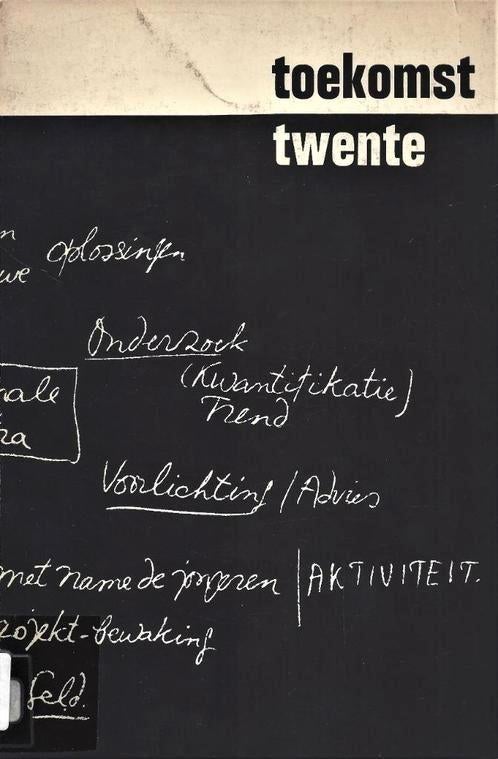 toekomst
twente
n oplossingen
we
Onderzoek
(Kwantifikatie)
Trend
nale
ra
Voorlichting / Advies
met name de jongeren | AKTIVITEIT.
rojekt-bewaking
Geld.